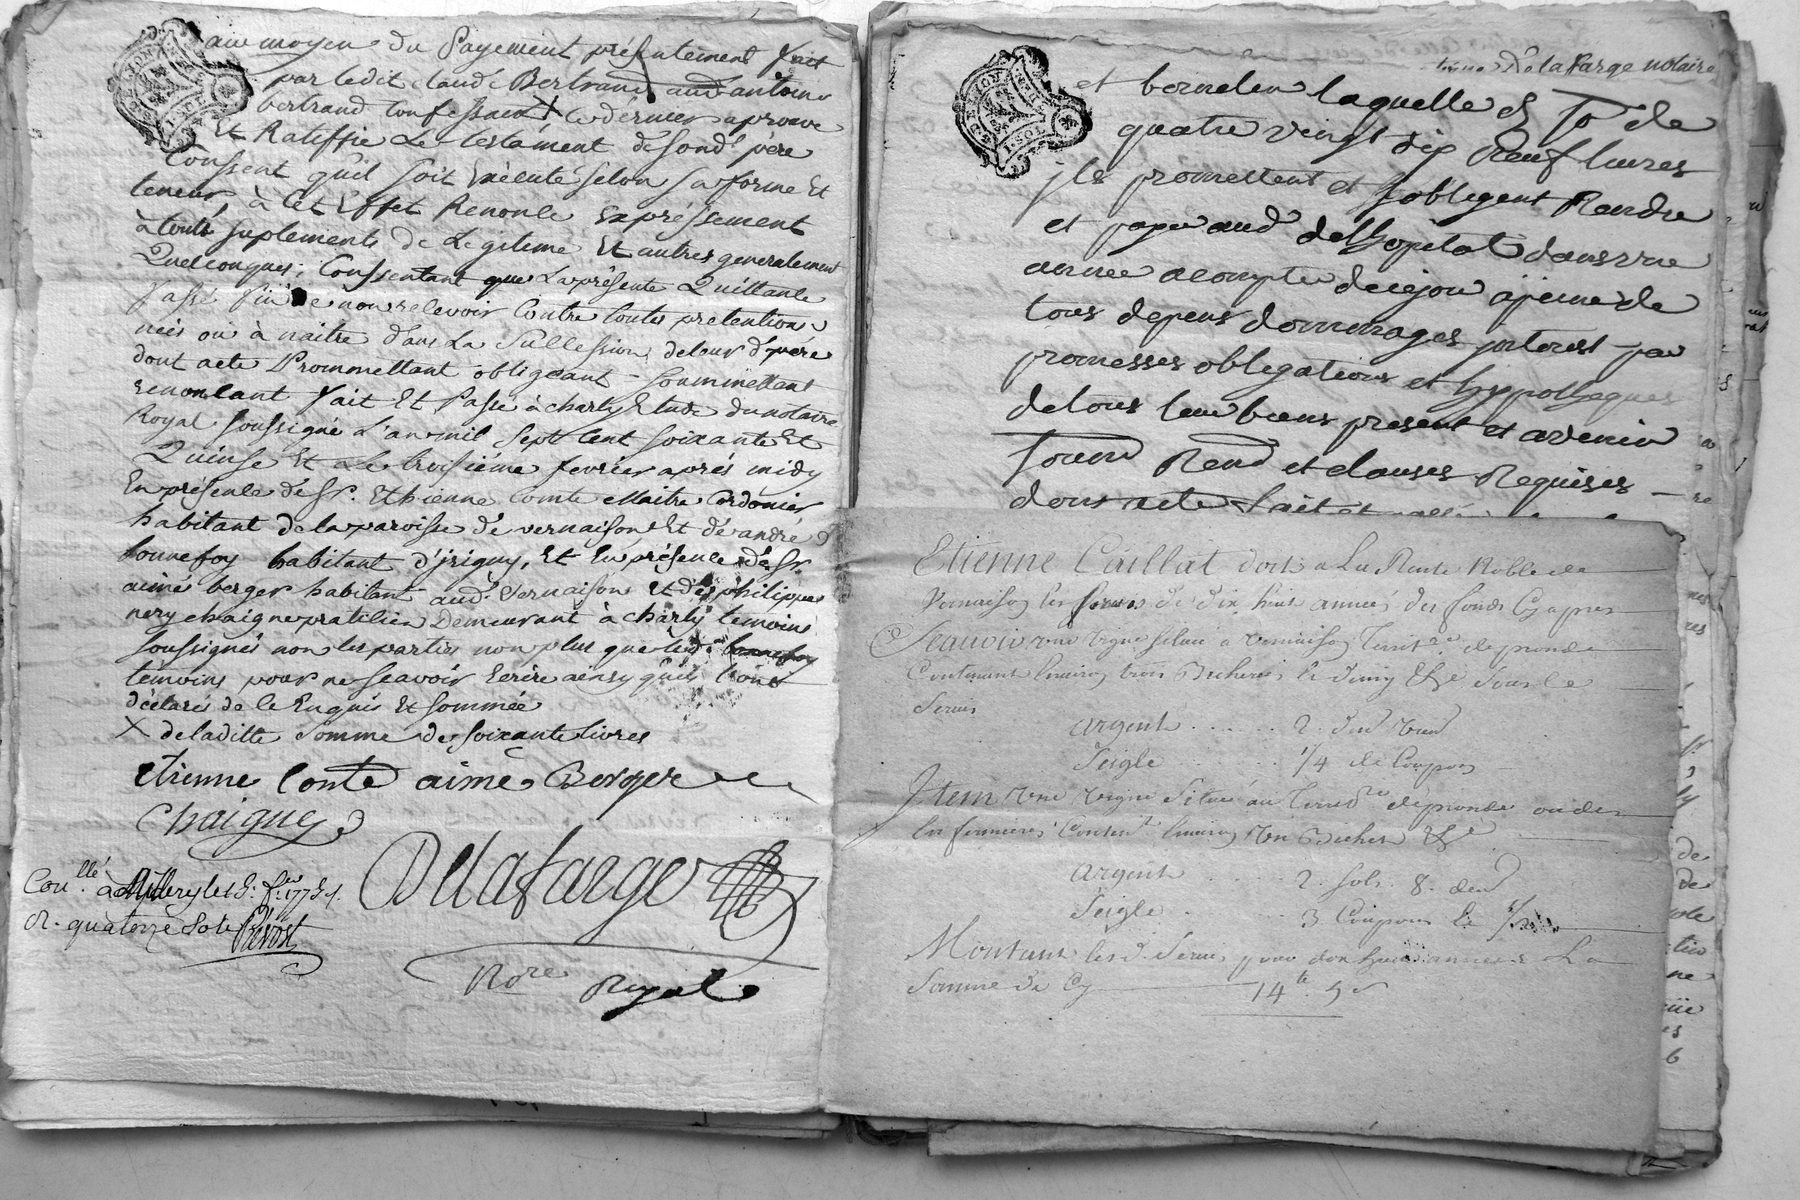 au moyen du Payement présentement fait
par ledit Claude Bertrand aud antoine
bertrand confessant X ce dérnier aprouve
Et Ratiffie Le testament de sond. pére
Consent qu'il soit Exécuté selon sa forme Et
teneur, à Cet Effet Renonce Expréssement
à touts suplements de Légitime Et autres generalement
Quelconques; Consentant que La présente Quittance
non relevoir Contre toutes pretentions
néés où à naitre dans La Succession de leur d. pére
dont acte Prommettant obligeant Soummettant
renonçant fait Et Passé à charly Etude du notaire
Royal soussigné L'an mil sept cent soixante Et
Quinse Et Le troisiéme fevrier aprés midy
En présence de Sr. Ethienne Comte Maitre Cordonier
habitant de la paroisse de vernaison Et d'andré
bonnefoy habitant d'jrigny, Et En présence de Sr.
aimé berger habitant aud. vernaison Et de philippes
nery chaigne praticien Demeurant à charly temoins
soussignés non les parties non plus que led. bonnefoy
témoins pour ne scavoir Ecrire ainsy qu'ils l'ont
déclaré de Ce Enquis Et sommée
X de la ditte somme de soixante Livres
etienne Conte aimé Berger
Chaigne
Delafarge
Con.llé à
R. quatorze sols Prévost
Nore Royal
Delafarge notaire
et bornelen laquelle de
quatre vingt dix Neuf livres
jls promettent et sobligent Rendre
et payer aud. delhopital dans une
année acompter decejour apeine de
tous depens dommages jnterest par
promesses obligations et hyppotheques
detous leur biens present et avenir
Soum Renon et clauses Requises
dont acte fait et passé
Etienne Caillat doit a La Rente Noble de
Vernaison les servis de dix huit années des fonds Cy apres
Sçauoir une vigne située a vernaison Territ.re depronde
Contenant Environ trois Bicherées
Servis
argent . . . . . 2. den
Seigle . . . . . 1/4 de Coupon
Jtem une vigne Située au Territ.re depronde
Environ un Bicher
argent . . . . . 2. sols. 8. den
Seigle . . . . . 3 Coupons
Montant les d. Servis pour dix huit années La
Somme de Cy 14